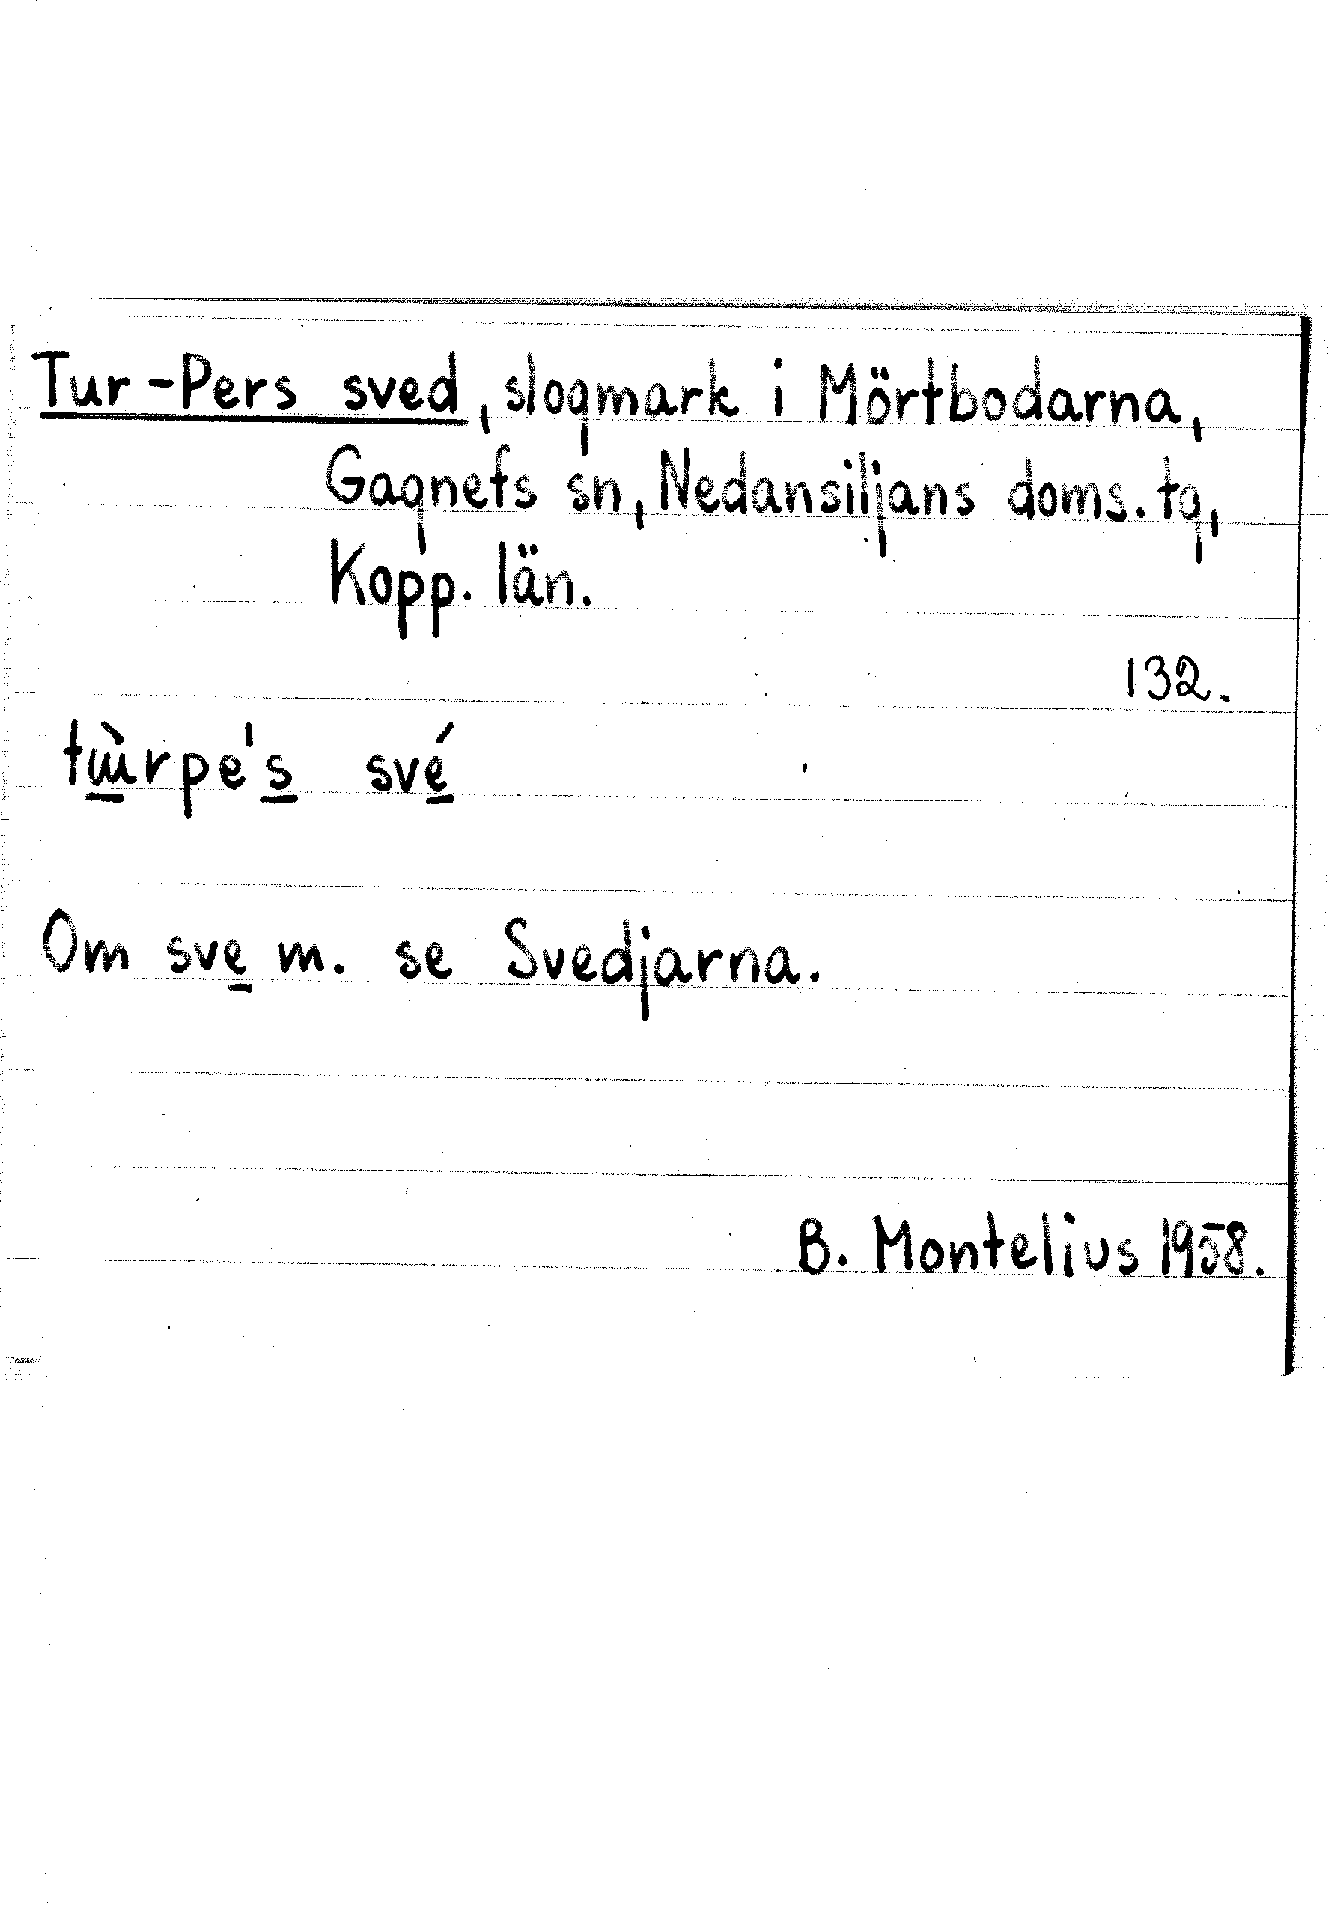 Tur-Pers sved, slogmark i Mörtbodarna,
Gagnefs sn, Nedansiljans doms. tg,
Kopp. län.
132.
tɯ̲̀rpe's̲ své̲
Om sve̲ m. se Svedjarna.
B. Montelius 1958.